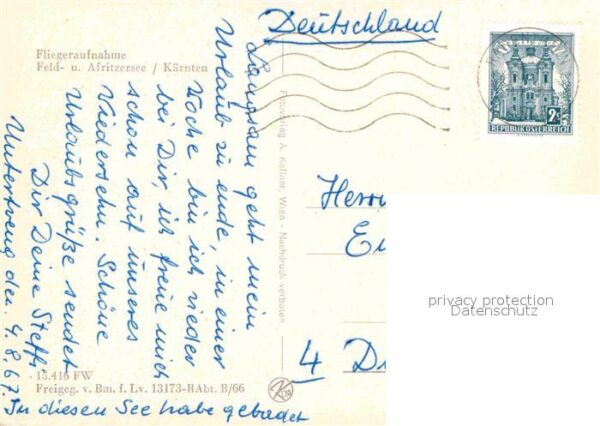 Deutschland
Fliegeraufnahme
Feld- u. Afritzersee / Kärnten
Langsam geht mein
Urlaub zu ende, in einer
Woche bin ich wieder
bei Dir, ich freue mich
schon auf unseres
Wiedersehn. Schöne
Urlaubsgrüße sendet
Dir Deine Steffi
Untertweng den 4.8.67.
In diesen See habe gebadet
13.416 FW
Freigeg. v. Bm. f. Lv. 13173-RAbt. B/66
Fotoverlag A. Kellner, Wien - Nachdruck verboten
2S
REPUBLIK ÖSTERREICH
Herrn
4 D
privacy protection
Datenschutz